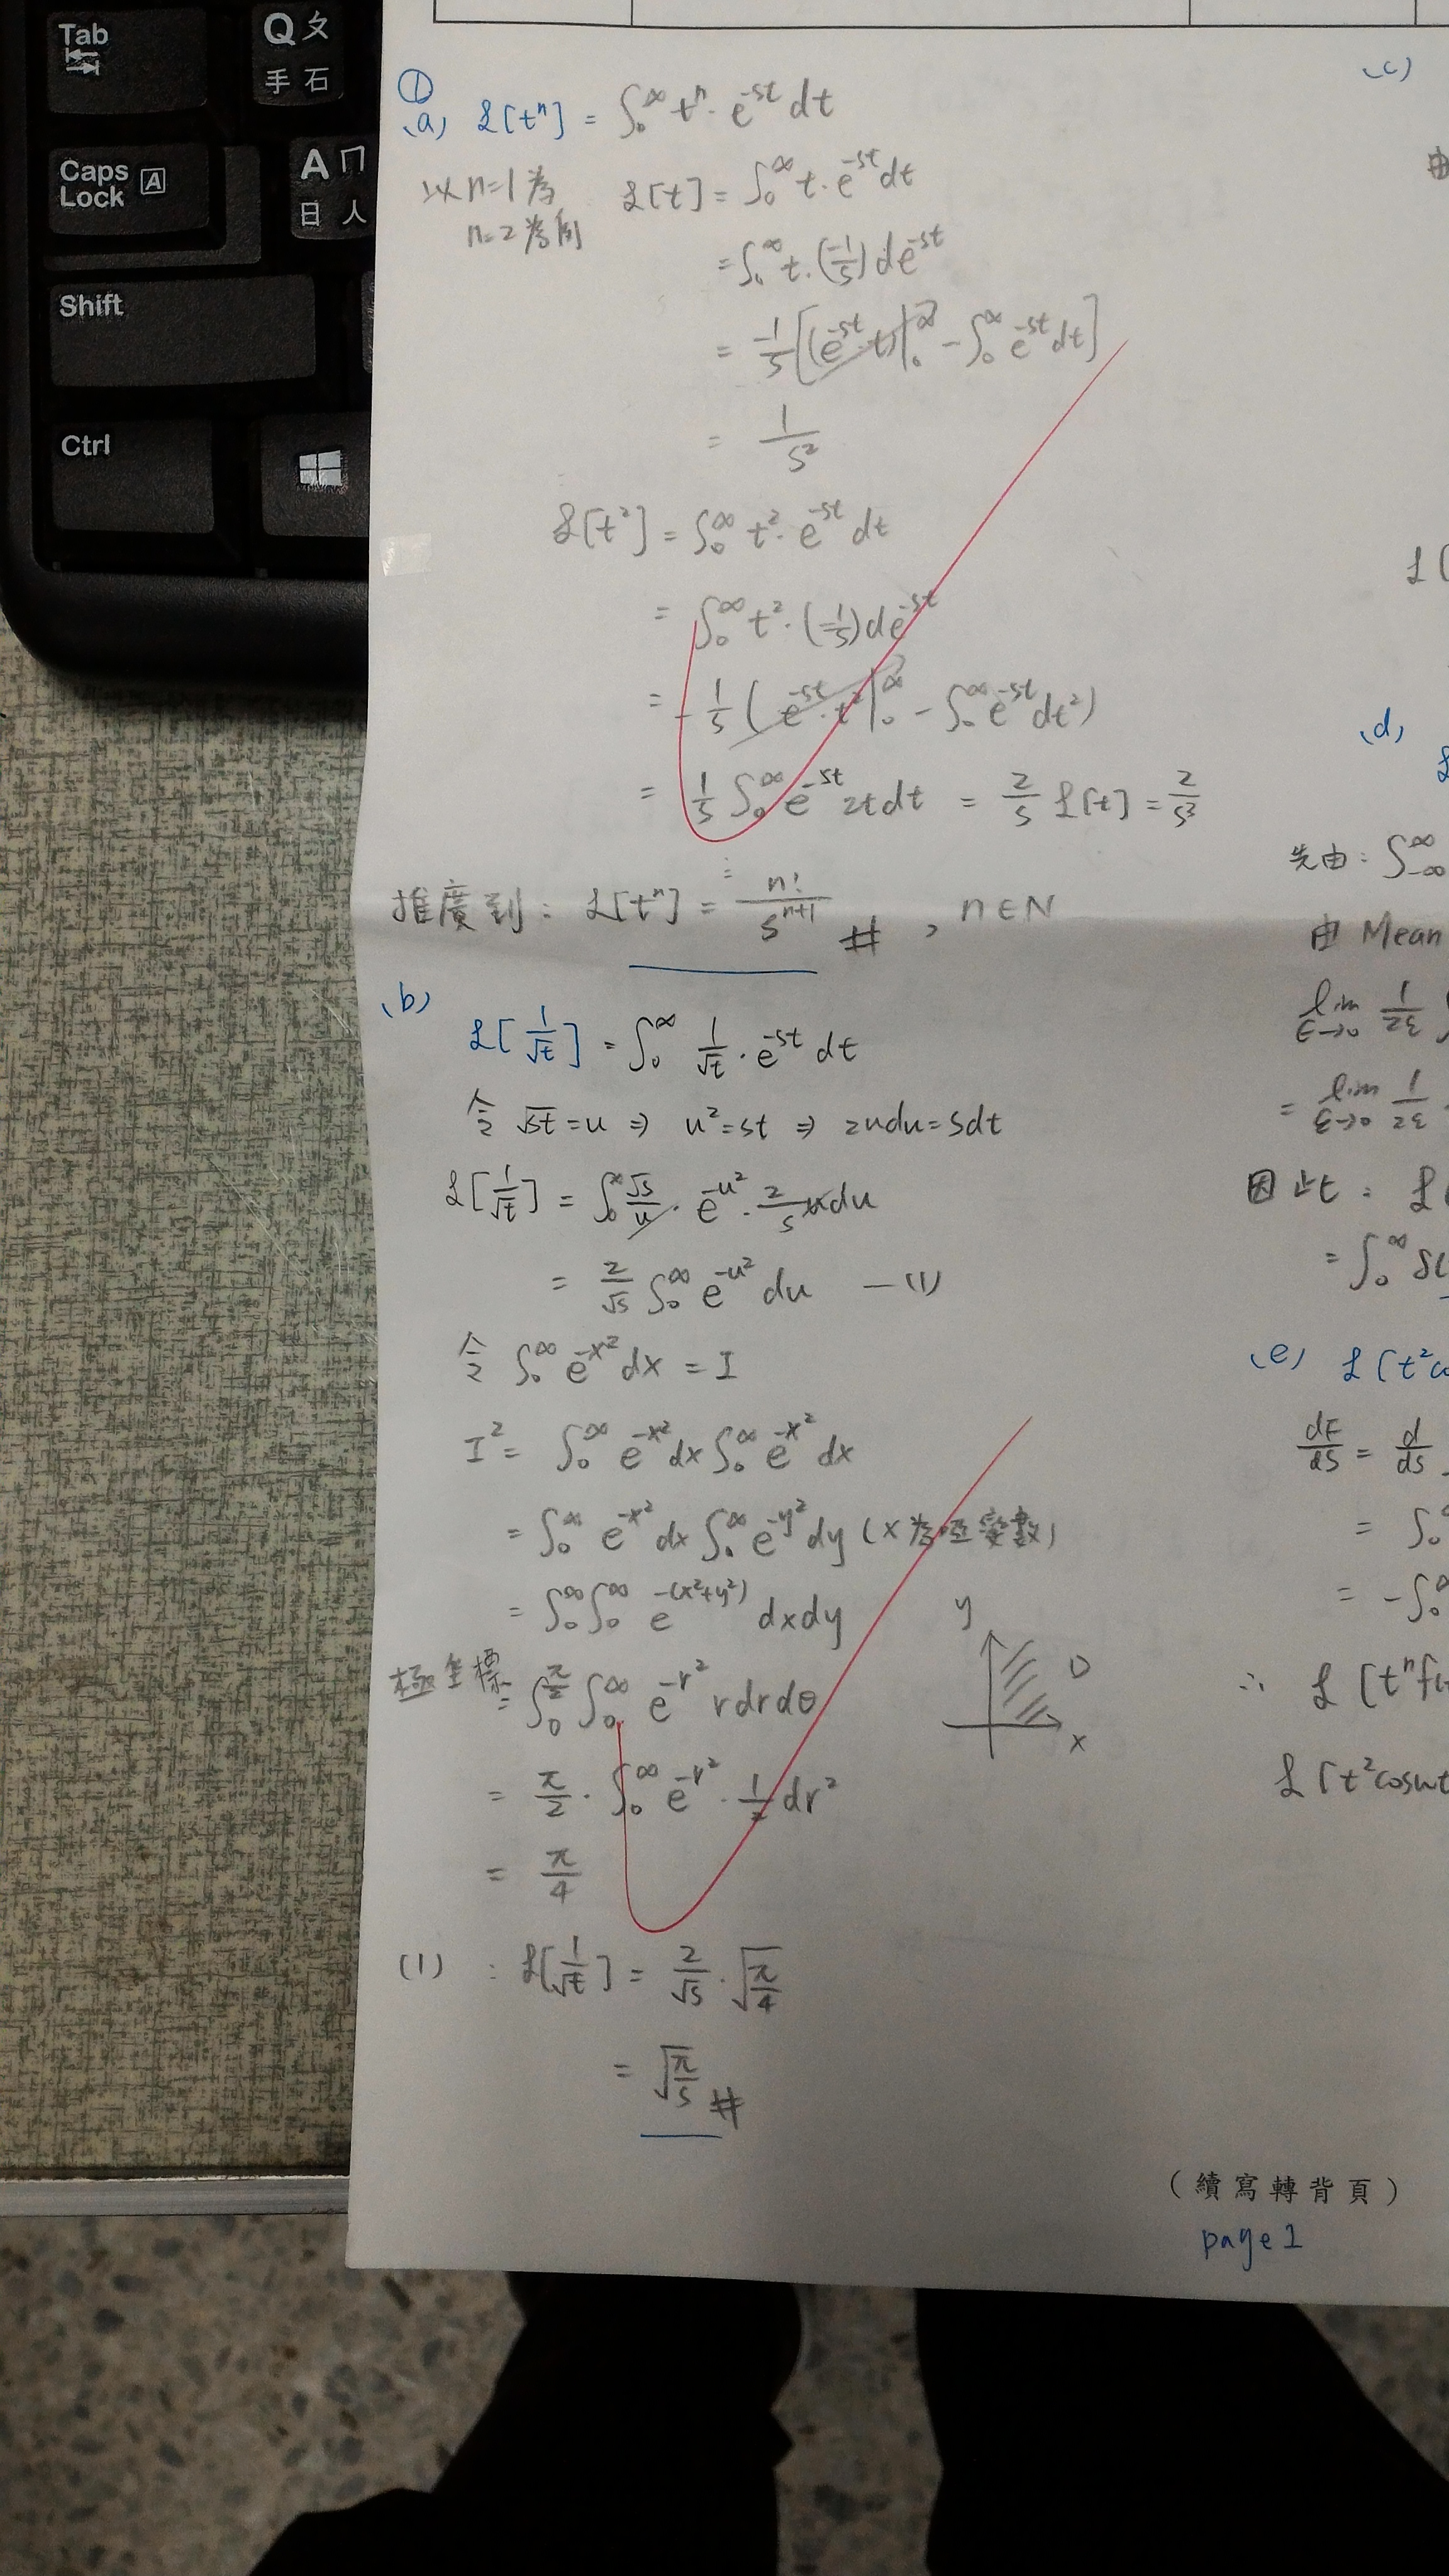 Tab
Q ㄆ
手 石
Caps Lock A
A ㄇ
日 人
Shift
Ctrl
①
(a) ℒ[tⁿ] = ∫₀^∞ tⁿ · e^{-st} dt
以 n=1 為
n=2 為例
ℒ[t] = ∫₀^∞ t · e^{-st} dt
= ∫₀^∞ t · (-1/s) de^{-st}
= -1/s [(e^{-st} · t)|₀^∞ - ∫₀^∞ e^{-st} dt]
= 1/s²
ℒ[t²] = ∫₀^∞ t² · e^{-st} dt
= ∫₀^∞ t² · (-1/s) de^{-st}
= -1/s (e^{-st} · t²|₀^∞ - ∫₀^∞ e^{-st} dt²)
= 1/s ∫₀^∞ e^{-st} 2t dt = 2/s ℒ[t] = 2/s³
⋮
推廣到: ℒ[tⁿ] = n!/s^{n+1} # , n∈N
(b)
ℒ[1/√t] = ∫₀^∞ 1/√t · e^{-st} dt
令 √st = u ⇒ u² = st ⇒ 2udu = sdt
ℒ[1/√t] = ∫₀^∞ √s/u · e^{-u²} · 2/s u du
= 2/√s ∫₀^∞ e^{-u²} du —(1)
令 ∫₀^∞ e^{-x²} dx = I
I² = ∫₀^∞ e^{-x²} dx ∫₀^∞ e^{-x²} dx
= ∫₀^∞ e^{-x²} dx ∫₀^∞ e^{-y²} dy (x為啞變數)
= ∫₀^∞ ∫₀^∞ e^{-(x²+y²)} dxdy
極坐標 = ∫₀^{π/2} ∫₀^∞ e^{-r²} r dr dθ
y
D
x
= π/2 · ∫₀^∞ e^{-r²} · 1/2 dr²
= π/4
(1) : ℒ[1/√t] = 2/√s · √(π/4)
= √(π/s) #
(c)
由
ℒ[
(d)
先由: ∫_{-∞}^∞
由 Mean
lim_{ε→0} 1/2ε
= lim_{ε→0} 1/2ε
因此: ℒ
= ∫₀^∞ δ(
(e) ℒ[t²co
dF/ds = d/ds
= ∫₀
= -∫₀
∴ ℒ[tⁿf(
ℒ[t²coswt
(續寫轉背頁)
page 1